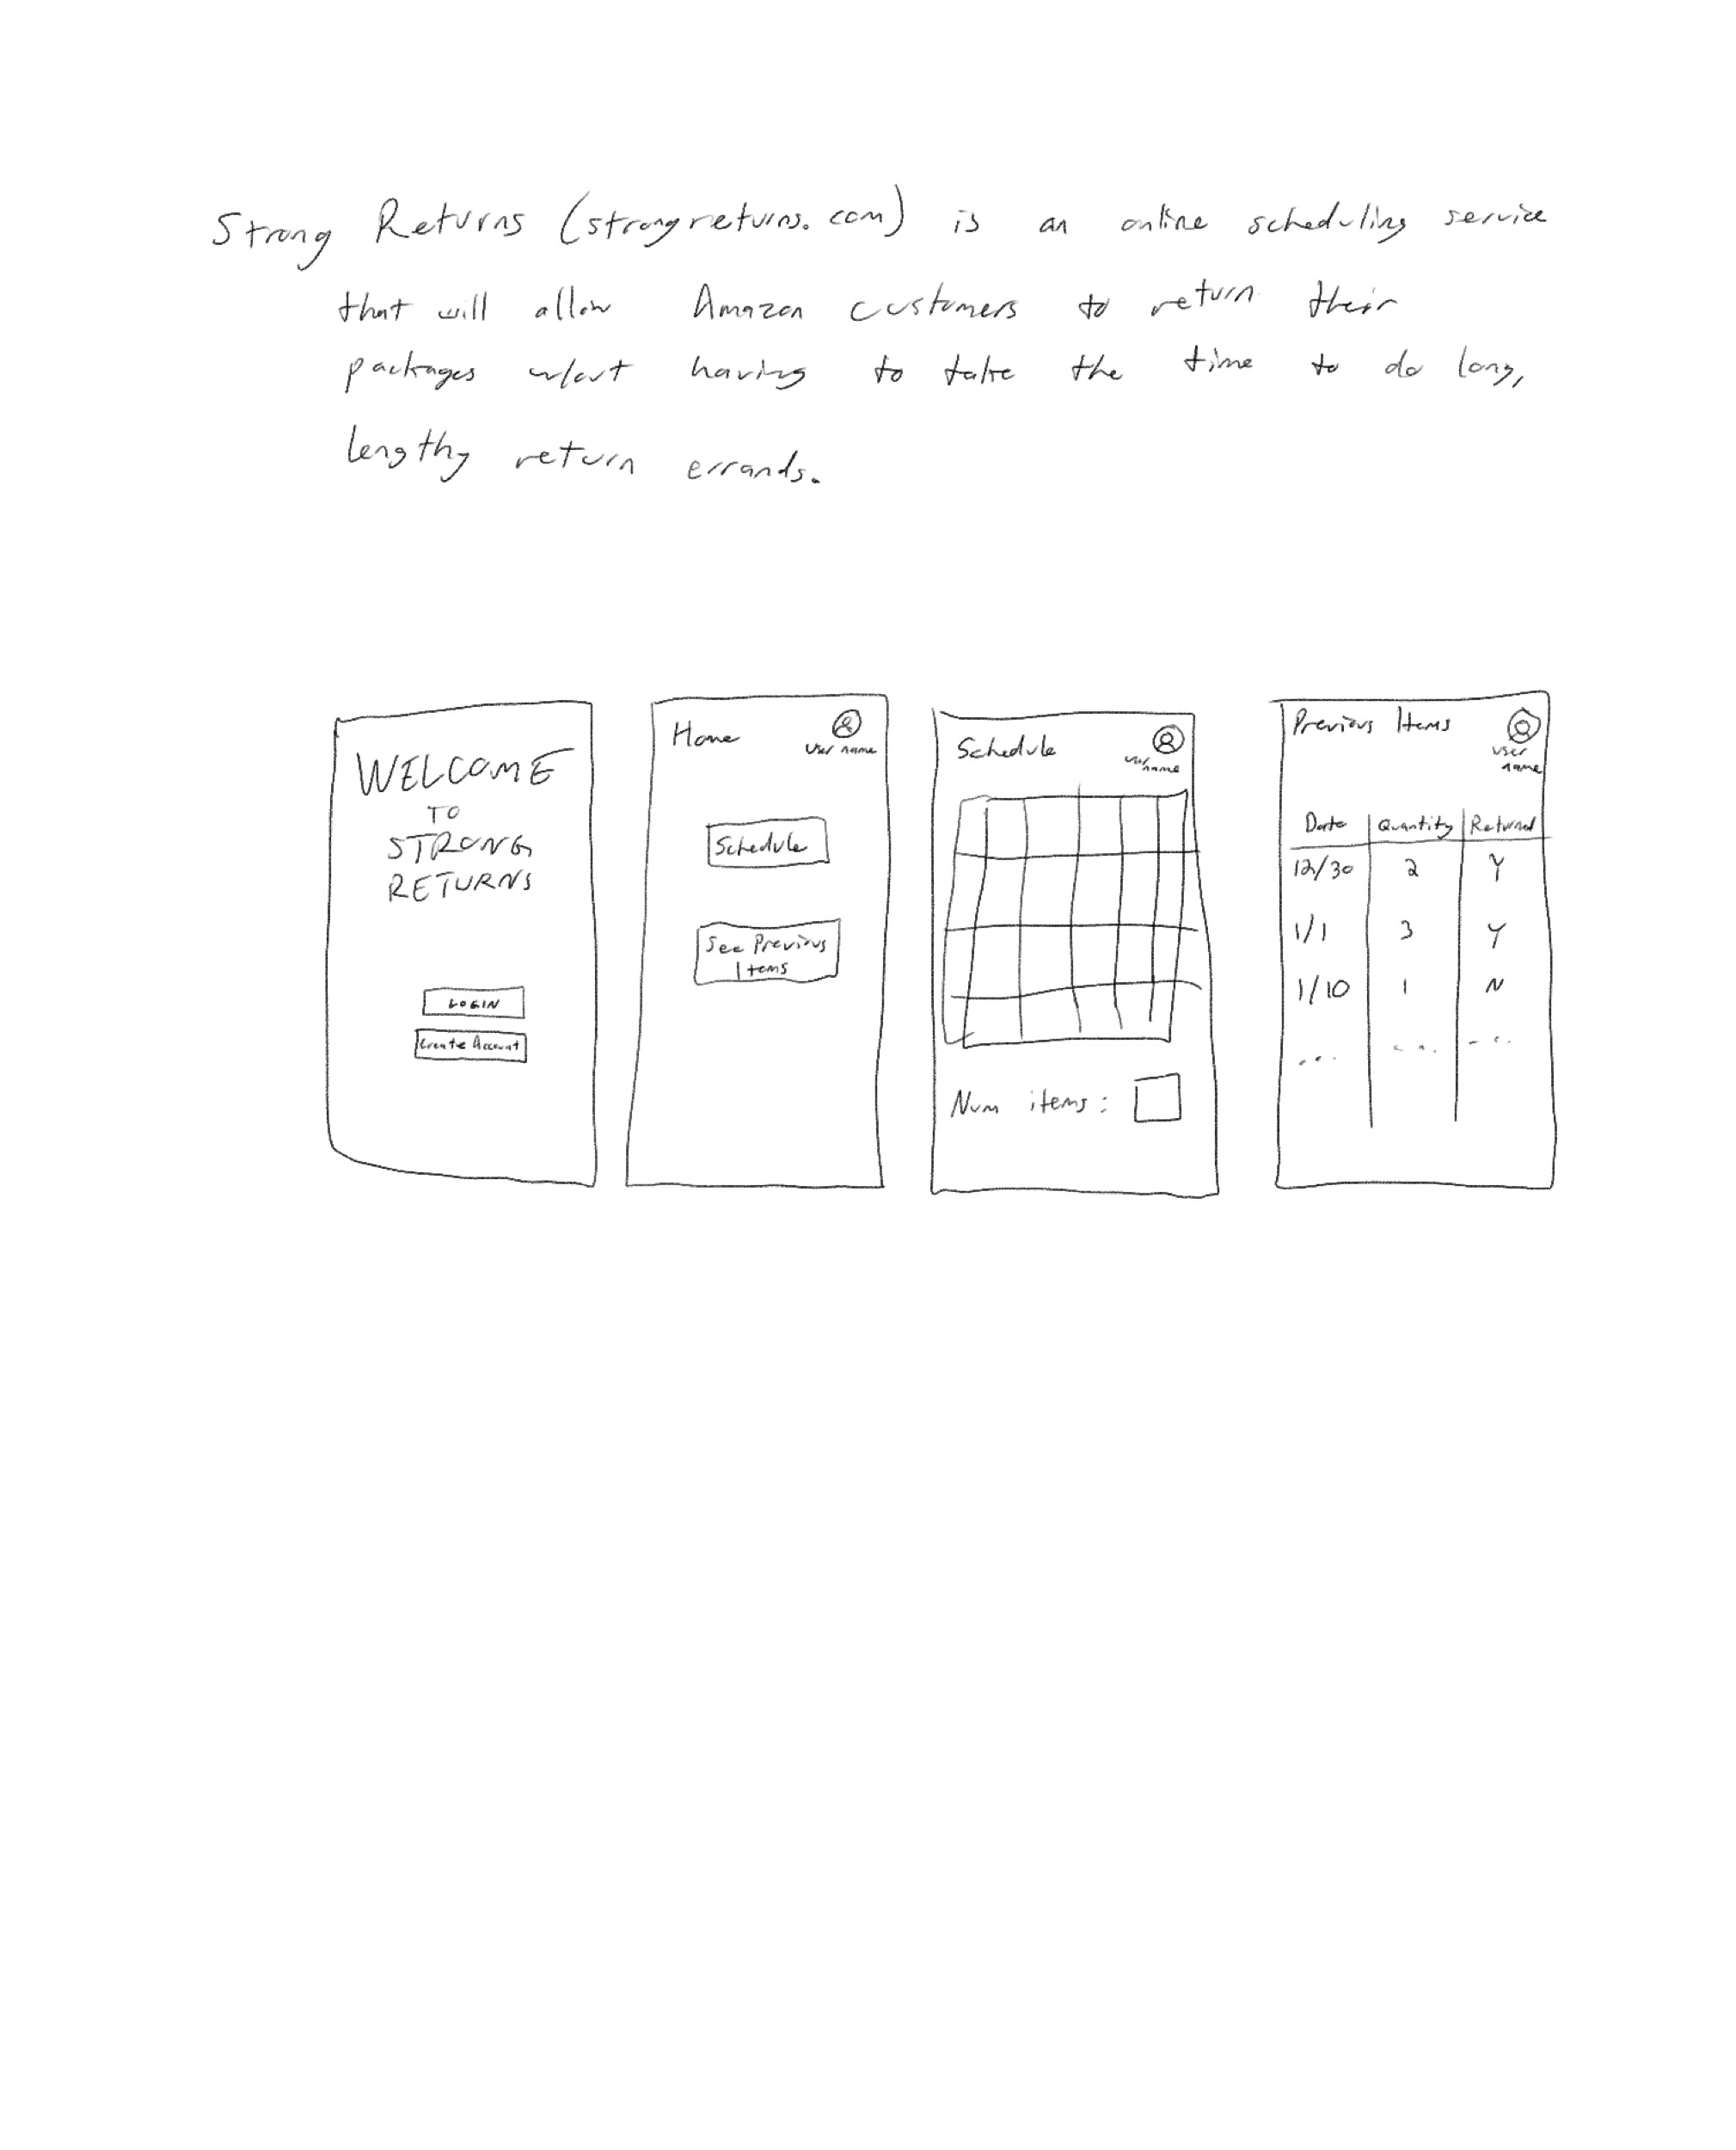 Strong Returns (strongreturns.com) is an online scheduling service
that will allow Amazon customers to return their
packages w/out having to take the time to do long,
lengthy return errands.
WELCOME
TO
STRONG
RETURNS
LOGIN
Create Account
Home
User name
Schedule
See Previous
Items
Schedule
username
Num items:
Previous Items
user
name
Date Quantity Returned
12/30 2 Y
1/1 3 Y
1/10 1 N
... ... ...